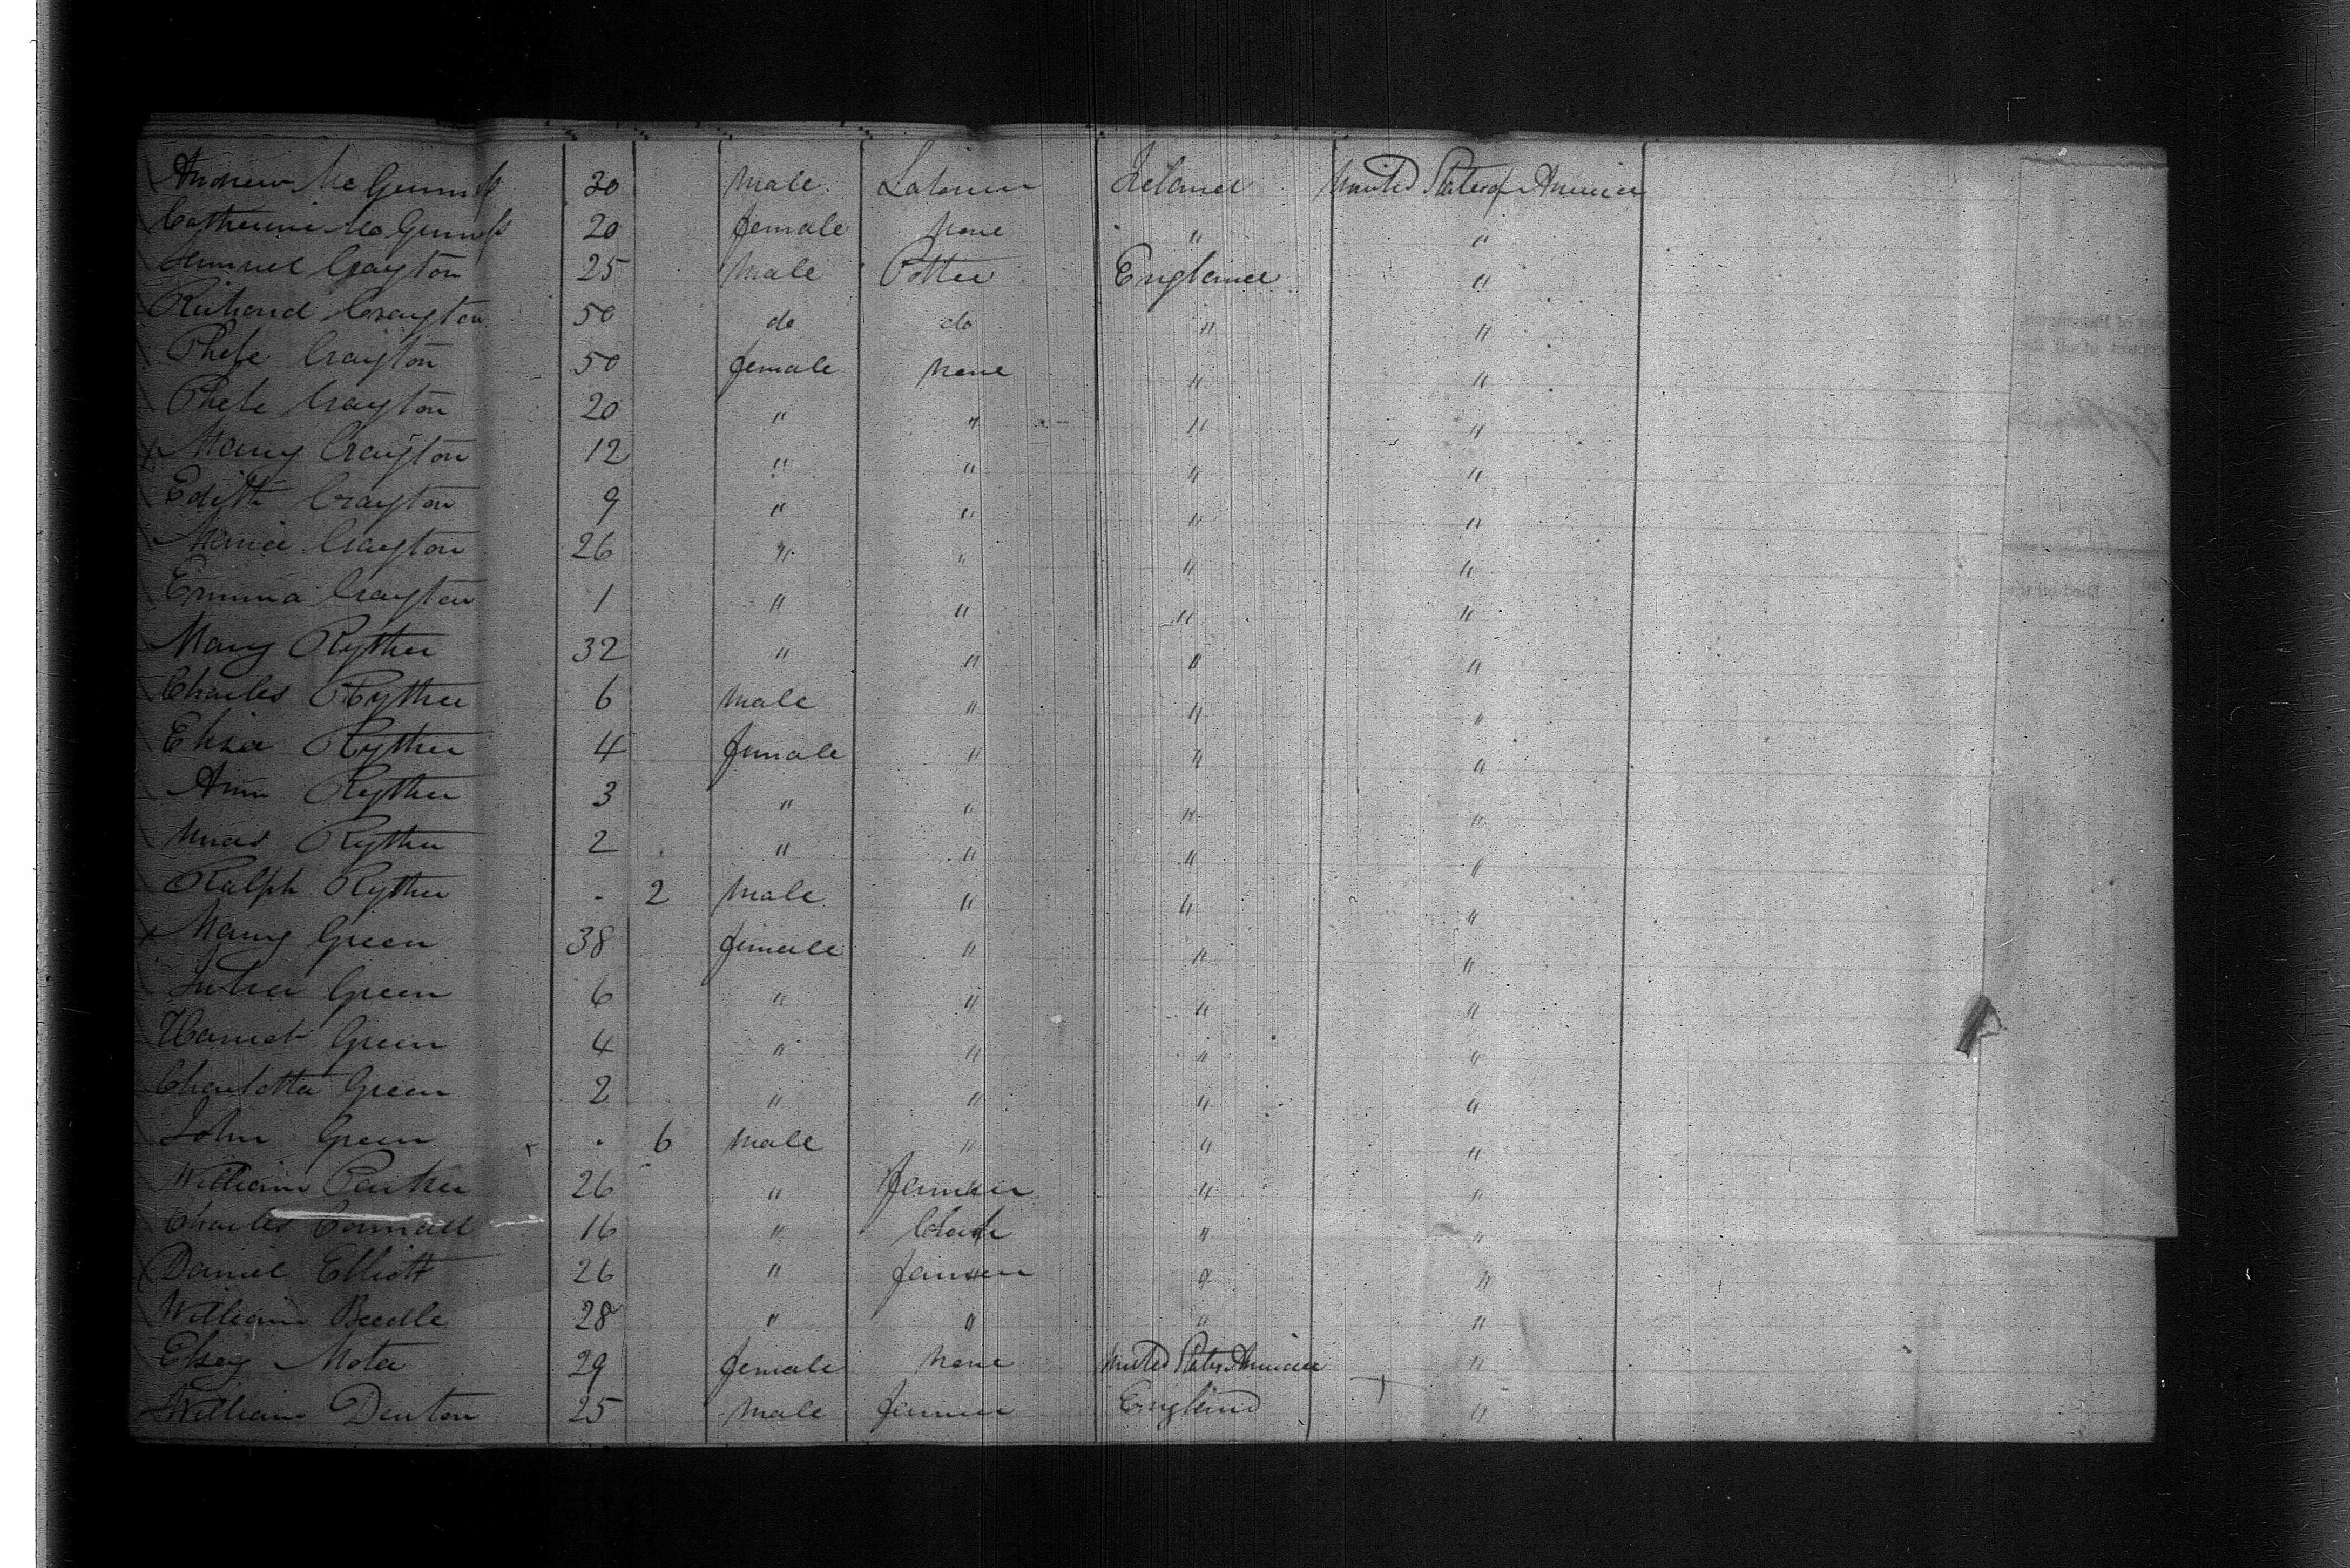 Andrew McGinness 30 Male Laborer Ireland United States of America
Catherine McGinness 20 female None " "
Samuel Crayton 25 Male Potter England "
Richard Crayton 50 do do " "
Phebe Crayton 50 female None " "
Phebe Crayton 20 " " " "
Mary Crayton 12 " " " "
Edith Crayton 9 " " " "
Crayton 26 " " " "
Emma Crayton 1 " " " "
Mary Ryther 32 " " " "
Charles Ryther 6 Male " " "
Eliza Ryther 4 female " " "
Ann Ryther 3 " " " "
Ryther 2 " " " "
Ralph Ryther . 2 Male " " "
Mary Green 38 female " " "
Julia Green 6 " " " "
Harriet Green 4 " " " "
Charlotta Green 2 " " " "
John Green . 6 Male " " "
William Parker 26 " Farmer " "
Charles 16 " Clerk " "
Daniel Elliott 26 " Farmer " "
William Beedle 28 " " " "
Mota 29 female None United States America "
William Denton 25 Male Farmer England "